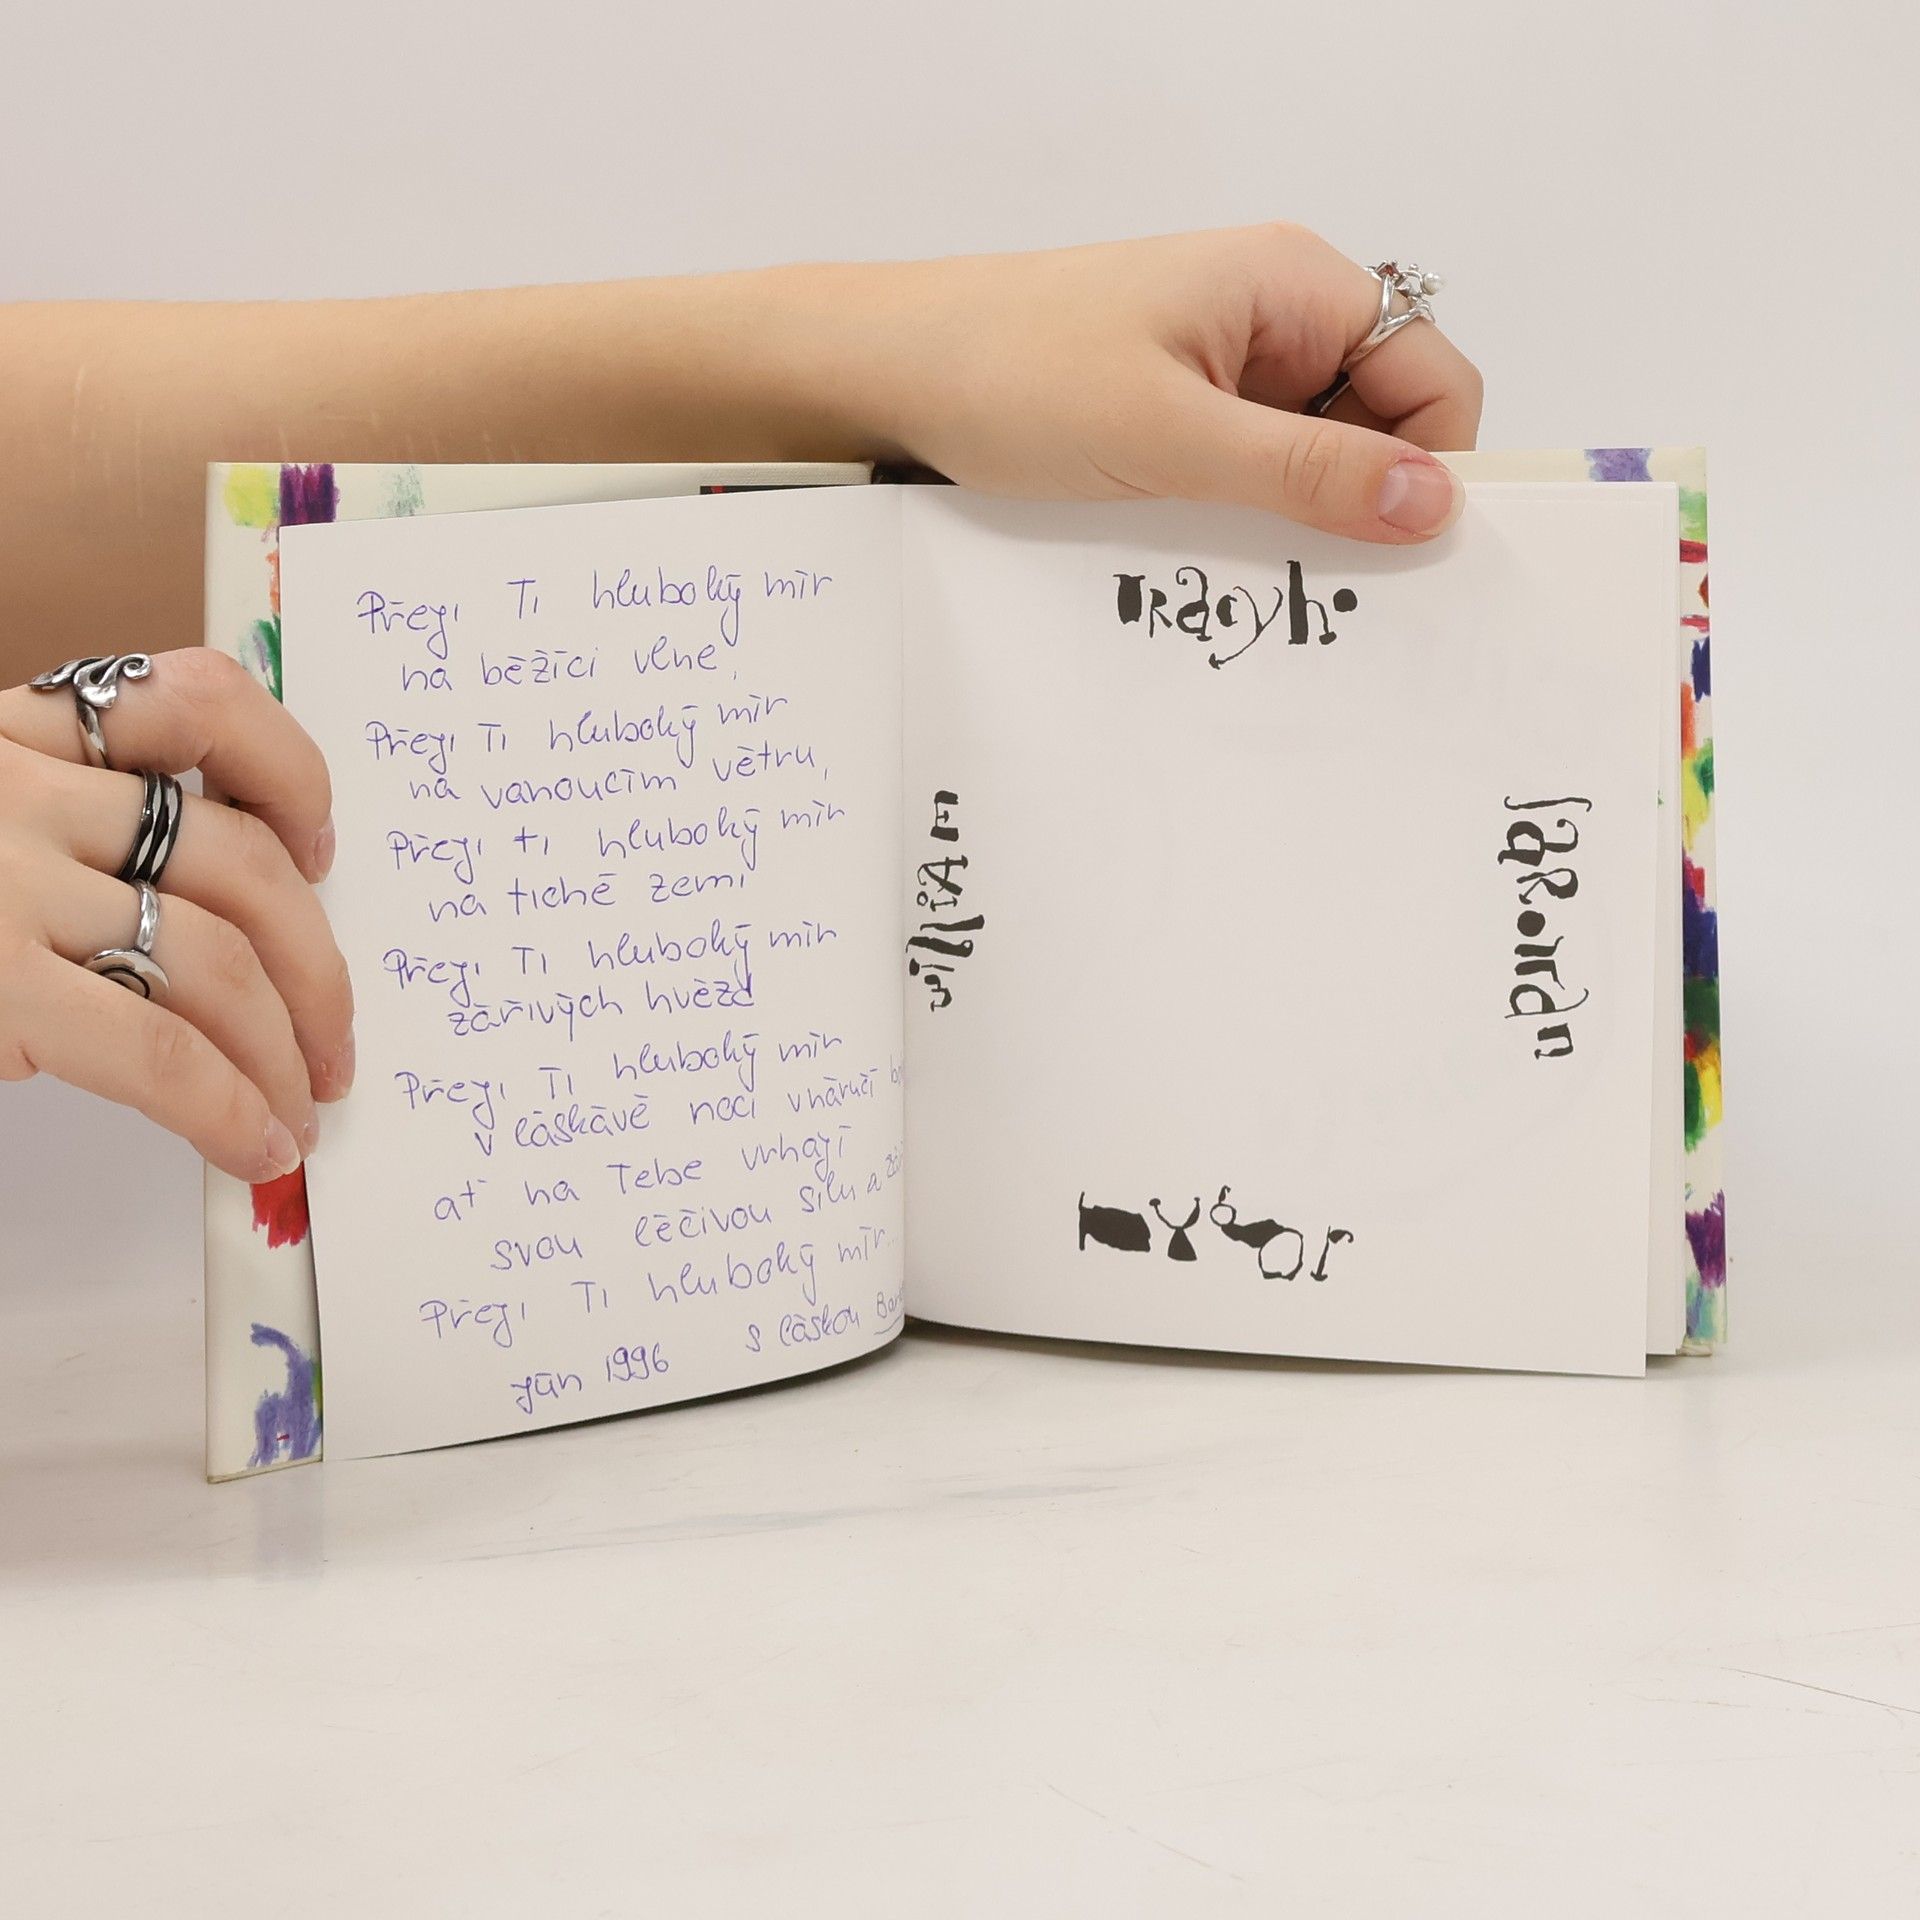 Přeji Ti hluboký mír
na běžící vlně,
Přeji Ti hluboký mír
na vanoucím větru,
Přeji ti hluboký mír
na tiché zemi
Přeji Ti hluboký mír
zářivých hvězd
Přeji Ti hluboký mír
v láskávé noci v náručí
ať na Tebe vrhají
svou léčivou sílu a
Přeji Ti hluboký mír...
s láskou
jún 1996
william
saroyan